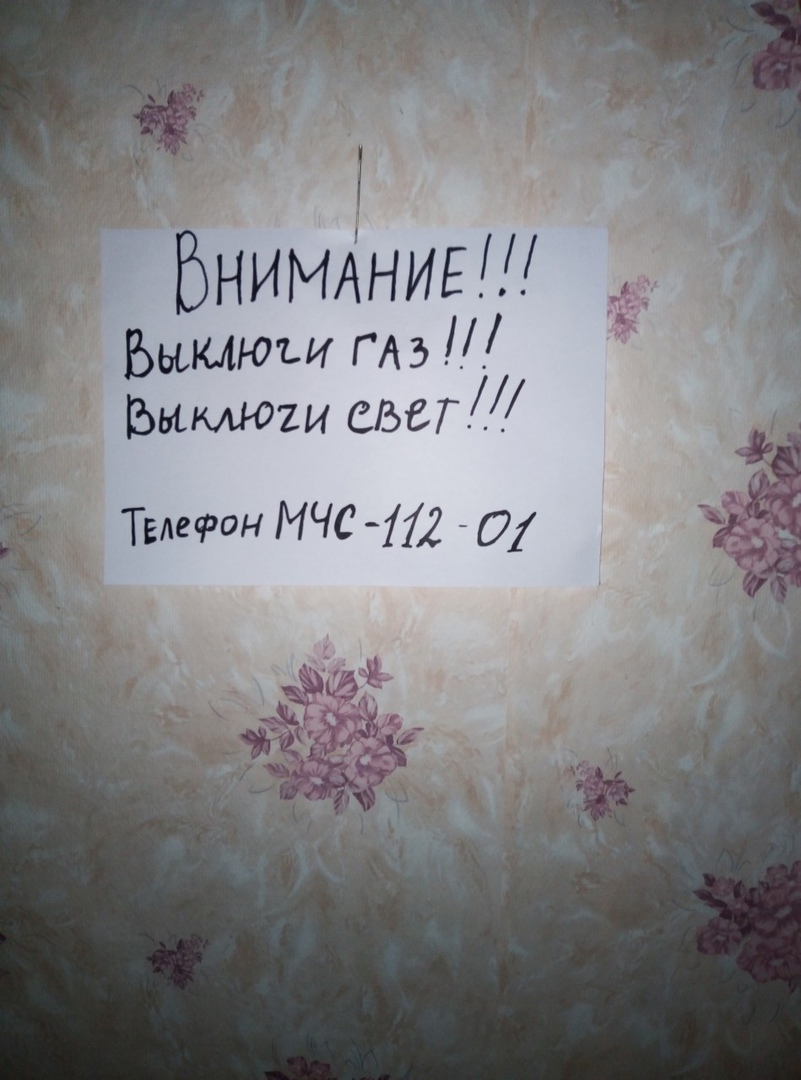 Внимание!!!
Выключи газ!!!
Выключи свет!!!
Телефон МЧС-112-01